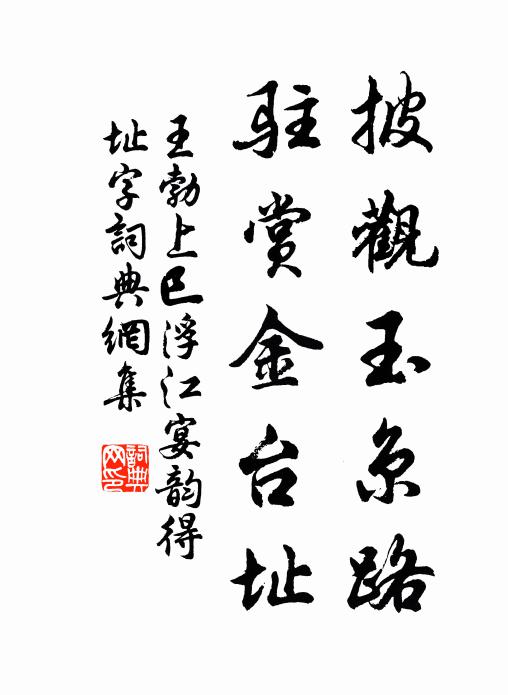 披觀玉京路
駐賞金台址
王勃上巳浮江宴韵得
址字詞典網集
詞典
网印